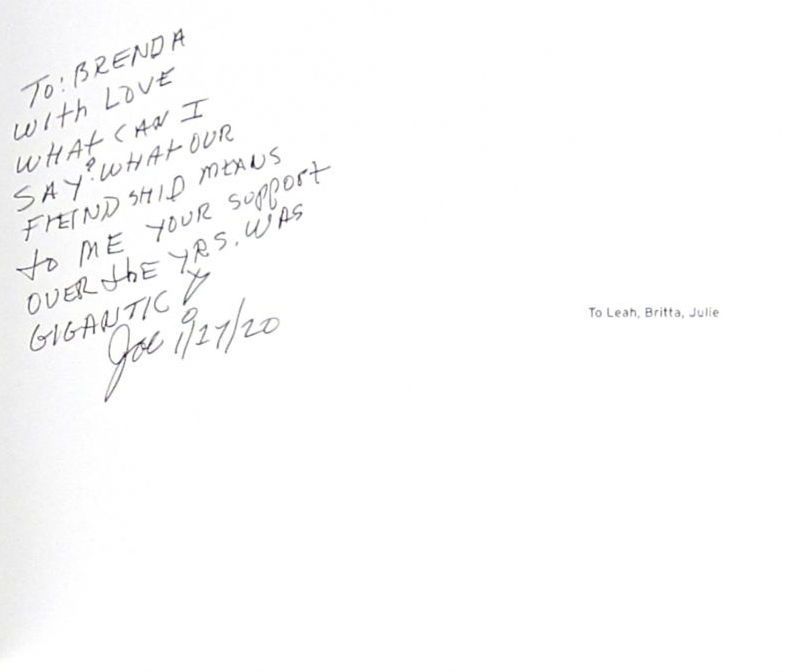 To: BRENDA
With LOVE
WHAT CAN I
SAY? WHAT OUR
FREINDSHIP MEANS
to ME YOUR SUPPORT
OVER thE YRS. WAS
GIGANTIC!
Joe 1/27/20
To Leah, Britta, Julie